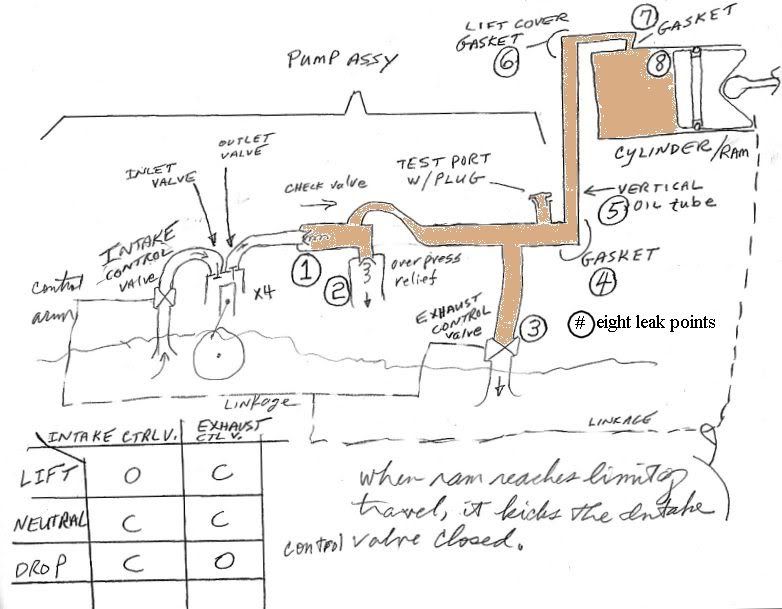 LIFT COVER
GASKET
6
7
GASKET
8
PUMP ASSY
CYLINDER/RAM
OUTLET
VALVE
INLET
VALVE
CHECK VALVE
TEST PORT
W/PLUG
VERTICAL
5 OIL tube
INTAKE
CONTROL
VALVE
1
GASKET
4
control
arm
X4
2
over press
relief
EXHAUST
CONTROL
valve
3
# eight leak points
LINKAGE
LINKAGE
INTAKE CTRL V. EXHAUST CTL V.
LIFT O C
NEUTRAL C C
DROP C O
when ram reaches limit of
travel, it kicks the Intake
control valve closed.